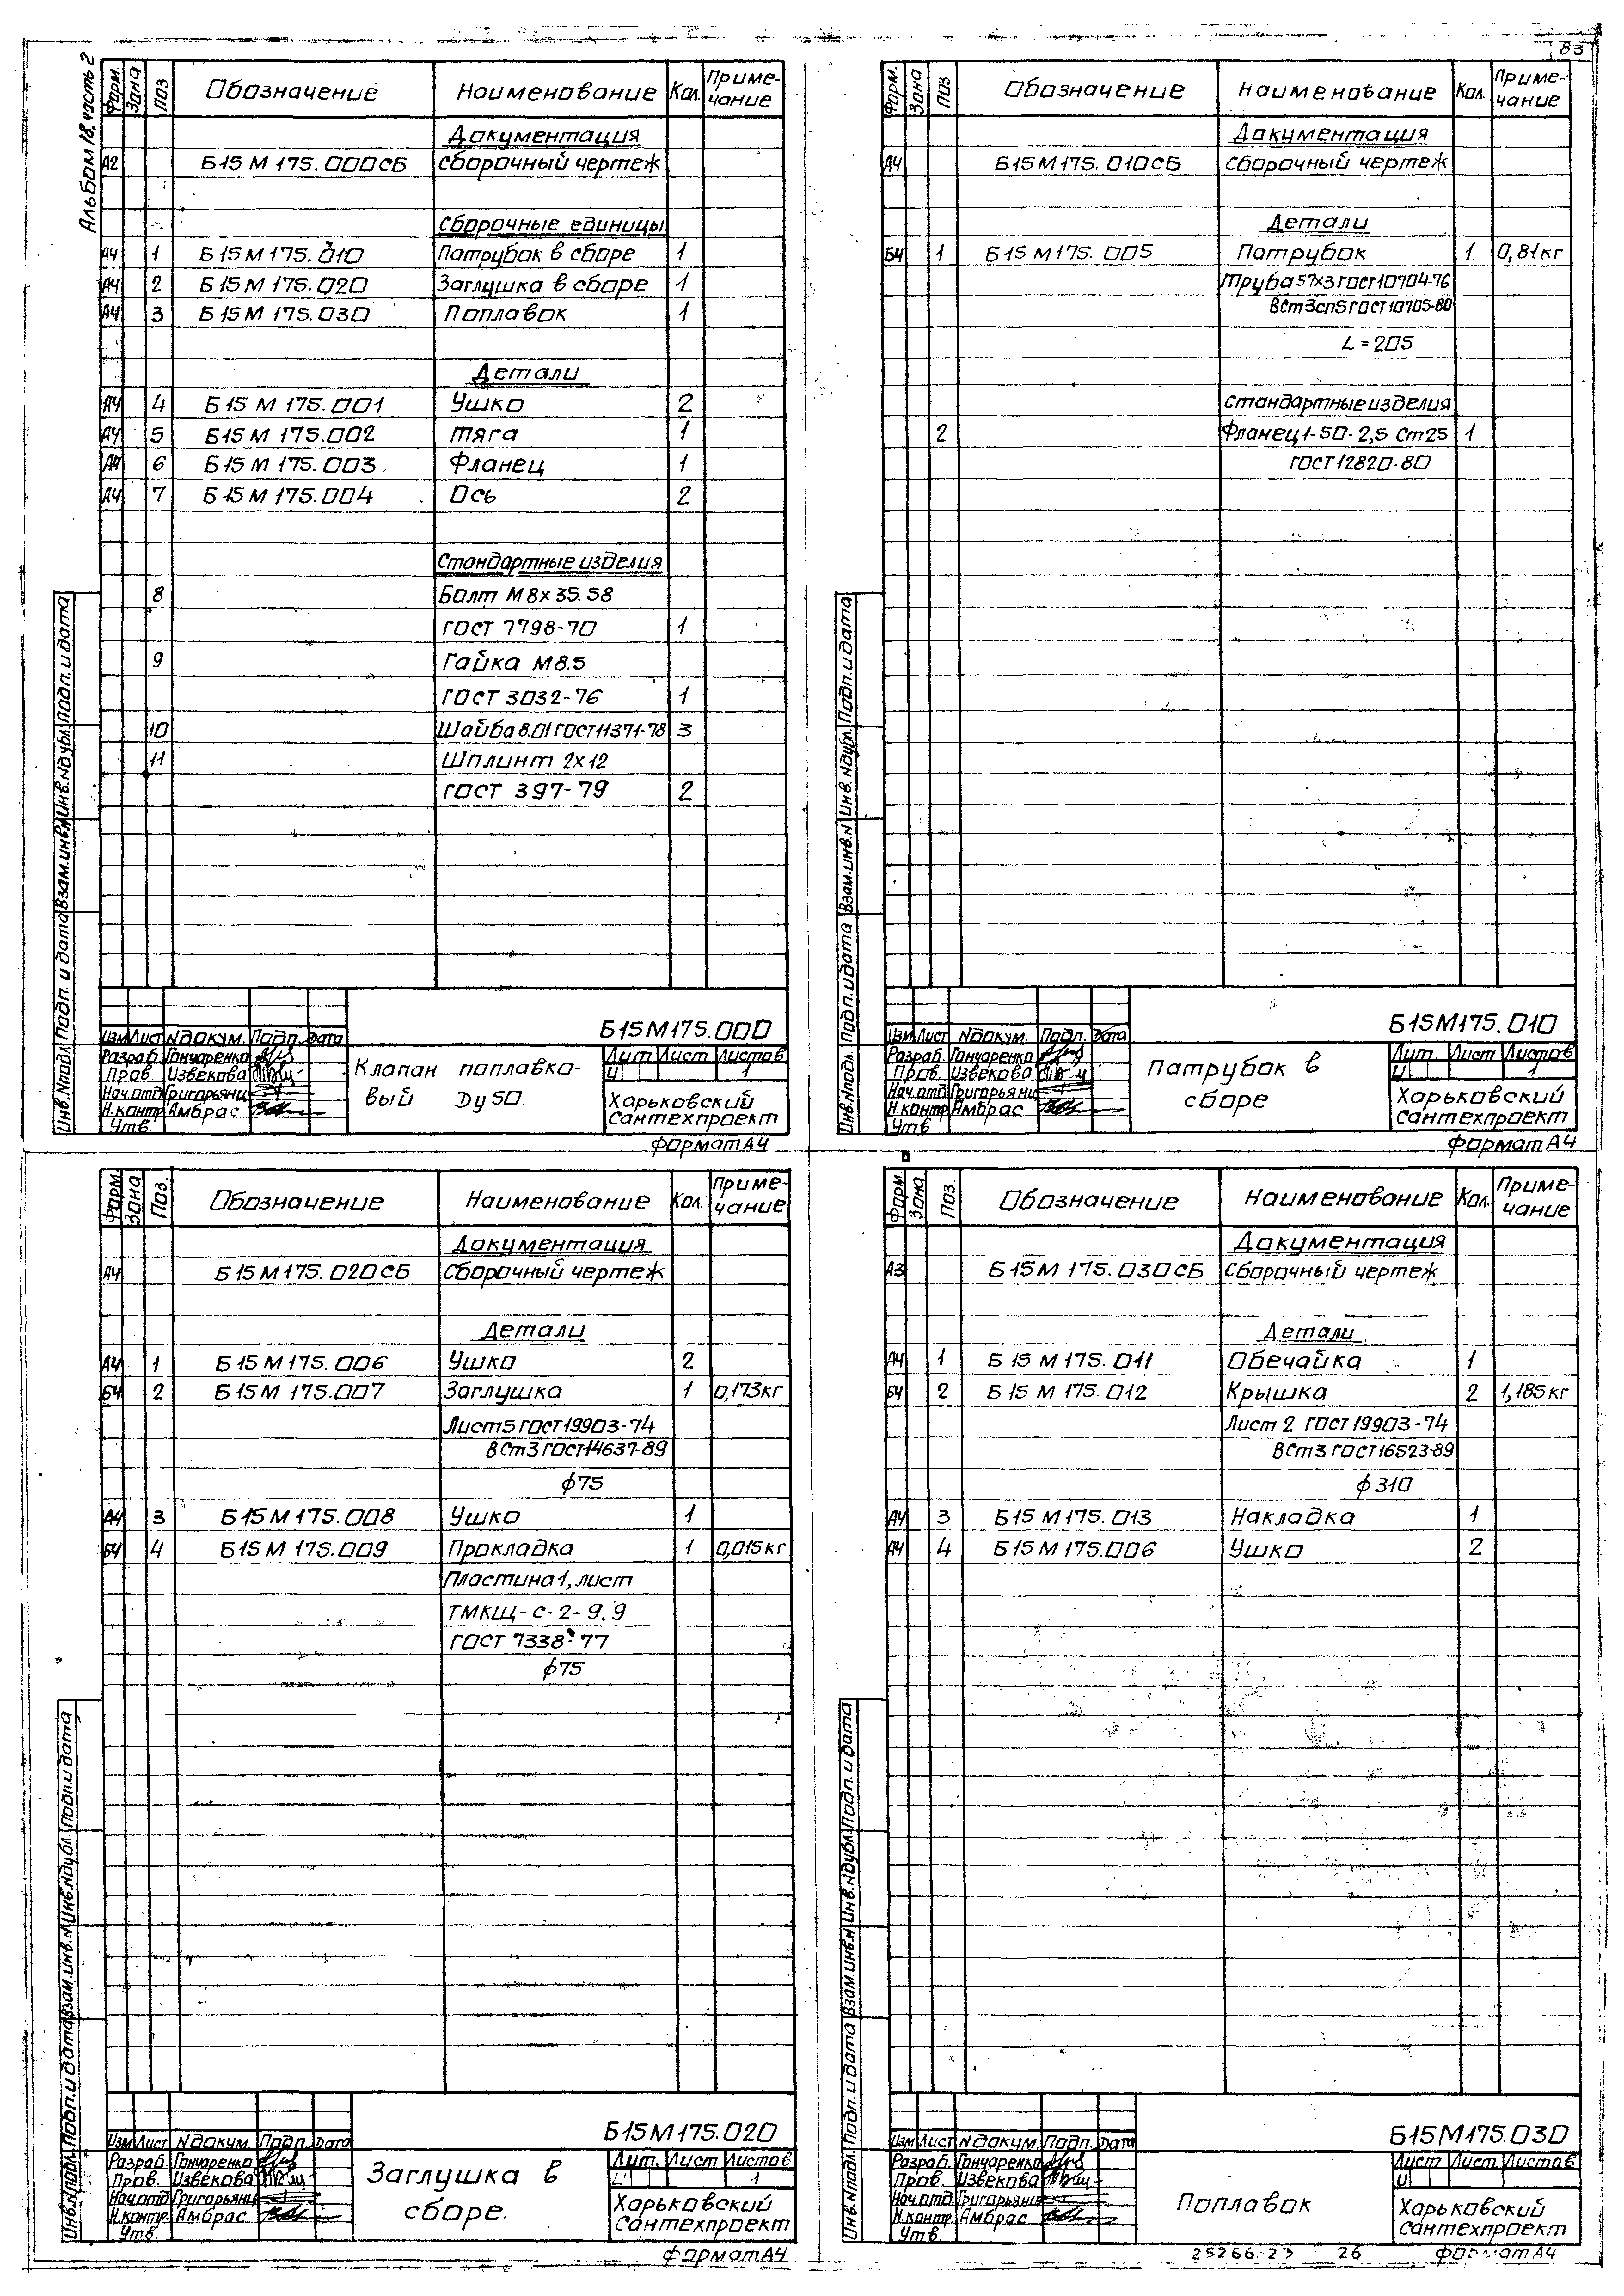 83
Альбом 18, часть 2
Форм. Зона Поз Обозначение Наименование Кол. Приме-
чание
Документация
А2 Б15М175.000СБ Сборочный чертеж
Сборочные единицы
А4 1 Б15М175.010 Патрубок в сборе 1
А4 2 Б15М175.020 Заглушка в сборе 1
А4 3 Б15М175.030 Поплавок 1
Детали
А4 4 Б15М175.001 Ушко 2
А4 5 Б15М175.002 Тяга 1
А4 6 Б15М175.003 Фланец 1
А4 7 Б15М175.004 Ось 2
Стандартные изделия
8 Болт М8х35.58
ГОСТ 7798-70 1
9 Гайка М8.5
ГОСТ 3032-76 1
10 Шайба 8.01 ГОСТ 11371-78 3
11 Шплинт 2х12
ГОСТ 397-79 2
Инв.Nподл. Подп. и дата Взам.инв.N Инв.Nдубл. Подп. и дата
Б15М175.000
Изм Лист Nдокум. Подп. Дата
Разраб. Гончаренко
Пров. Извекова
Нач.отд Григорьянц
Н.контр Амбрас
Утв.
Клапан поплавко-
вый Ду50.
Лит Лист Листов
И 1
Харьковский
Сантехпроект
Формат А4
Форм. Зона Поз Обозначение Наименование Кол. Приме-
чание
Документация
А4 Б15М175.010СБ Сборочный чертеж
Детали
БЧ 1 Б15М175.005 Патрубок 1 0,81кг
Труба 57х3 ГОСТ 10704-76
ВСт3сп5 ГОСТ 10705-80
L=205
Стандартные изделия
2 Фланец 1-50-2,5 Ст25 1
ГОСТ 12820-80
Инв.Nподл. Подп. и дата Взам.инв.N Инв.Nдубл. Подп. и дата
Б15М175.010
Изм Лист Nдокум. Подп. Дата
Разраб. Гончаренко
Пров. Извекова
Нач.отд Григорьянц
Н.контр Амбрас
Утв
Патрубок в
сборе
Лит. Лист Листов
И 1
Харьковский
Сантехпроект
Формат А4
Форм Зона Поз. Обозначение Наименование Кол. Приме-
чание
Документация
А4 Б15М175.020СБ Сборочный чертеж
Детали
А4 1 Б15М175.006 Ушко 2
БЧ 2 Б15М175.007 Заглушка 1 0,173кг
Лист 5 ГОСТ 19903-74
ВСт3 ГОСТ 14637-89
ф75
А4 3 Б15М175.008 Ушко 1
БЧ 4 Б15М175.009 Прокладка 1 0,015кг
Пластина 1, лист
ТМКЩ-С-2-9.9
ГОСТ 7338-77
ф75
Инв.Nподл. Подп. и дата Взам.инв.N Инв.Nдубл. Подп. и дата
Б15М175.020
Изм Лист Nдокум. Подп. Дата
Разраб. Гончаренко
Пров. Извекова
Нач.отд. Григорьянц
Н.контр. Амбрас
Утв.
Заглушка в
сборе.
Лит. Лист Листов
1
Харьковский
Сантехпроект
Формат А4
Форм Зона Поз. Обозначение Наименование Кол. Приме-
чание
Документация
А3 Б15М175.030СБ Сборочный чертеж
Детали
А4 1 Б15М175.011 Обечайка 1
БЧ 2 Б15М175.012 Крышка 2 1,185кг
Лист 2 ГОСТ 19903-74
ВСт3 ГОСТ 16523-89
ф310
А4 3 Б15М175.013 Накладка 1
А4 4 Б15М175.006 Ушко 2
Инв.Nподл. Подп. и дата Взам.инв.N Инв.Nдубл. Подп. и дата
Б15М175.030
Изм Лист Nдокум. Подп. Дата
Разраб. Гончаренко
Пров. Извекова
Нач.отд. Григорьянц
Н.контр. Амбрас
Утв.
Поплавок
Лист Лист Листов
И
Харьковский
Сантехпроект
25266-23 26 Формат А4